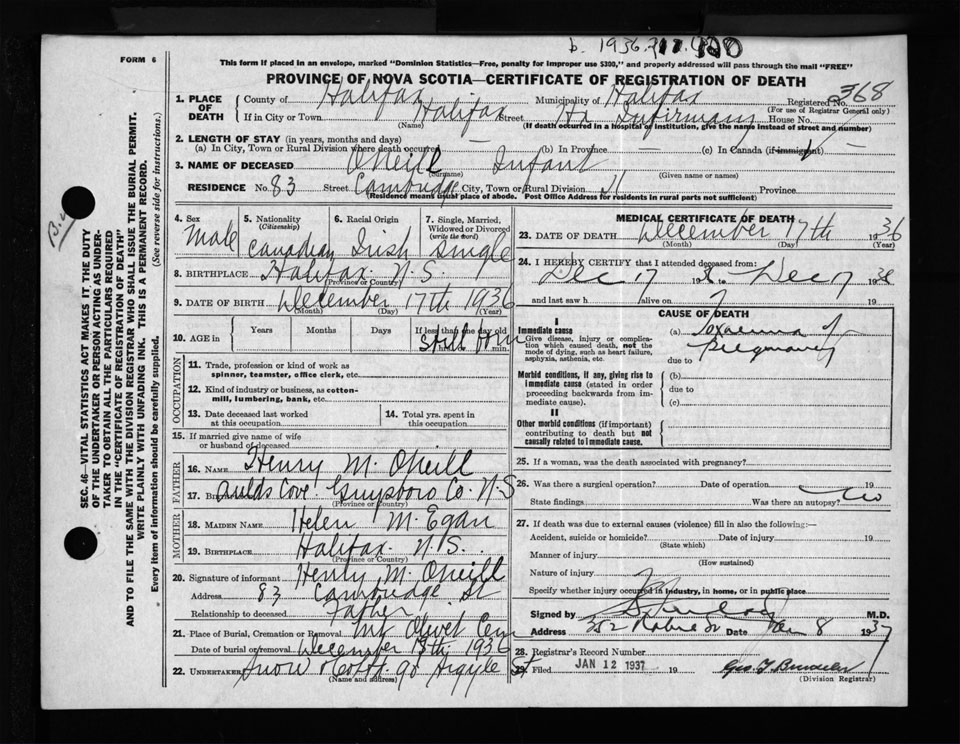 b. 1936.
FORM 6
This form if placed in an envelope, marked "Dominion Statistics—Free, penalty for improper use $300," and properly addressed will pass through the mail "FREE"
PROVINCE OF NOVA SCOTIA—CERTIFICATE OF REGISTRATION OF DEATH
1. PLACE OF DEATH County of Halifax Municipality of Halifax Registered No. 368
(For use of Registrar General only)
If in City or Town Halifax Street Hx Infirmary House No.
(Name) (If death occurred in a hospital or institution, give the name instead of street and number)
2. LENGTH OF STAY (in years, months and days)
(a) In City, Town or Rural Division where death occurred — (b) In Province — (c) In Canada (if immigrant) —
3. NAME OF DECEASED O'Neill Infant
(Surname) (Given name or names)
RESIDENCE No. 83 Street Cambridge City, Town or Rural Division Province
(Residence means usual place of abode. Post Office Address for residents in rural parts not sufficient)
4. Sex Male
5. Nationality (Citizenship) Canadian
6. Racial Origin Irish
7. Single, Married, Widowed or Divorced (write the word) Single
8. BIRTHPLACE Halifax N.S.
(Province or Country)
9. DATE OF BIRTH December 17th 1936
(Month) (Day) (Year)
10. AGE in Years Months Days If less than one day old
Still born
hrs. min.
OCCUPATION
11. Trade, profession or kind of work as spinner, teamster, office clerk, etc.
12. Kind of industry or business, as cotton-mill, lumbering, bank, etc.
13. Date deceased last worked at this occupation
14. Total yrs. spent in this occupation
15. If married give name of wife or husband of deceased
FATHER
16. NAME Henry M. O'Neill
17. BIRTHPLACE Aulds Cove. Guysboro Co. N.S
(Province or Country)
MOTHER
18. MAIDEN NAME Helen M. Egan
19. BIRTHPLACE Halifax N.S.
(Province or Country)
20. Signature of informant Henry M. O'Neill
Address 83 Cambridge St
Relationship to deceased Father
21. Place of Burial, Cremation or Removal Mt Olivet Cem
Date of burial or removal December 18th 1936
22. UNDERTAKER Snow & Co 90 Argyle St
(Name and address)
MEDICAL CERTIFICATE OF DEATH
23. DATE OF DEATH December 17th 1936
(Month) (Day) (Year)
24. I HEREBY CERTIFY that I attended deceased from:
Dec 17 1936 to Dec 17 1936
and last saw h alive on 19
CAUSE OF DEATH
I
Immediate cause
Give disease, injury or complication which caused death, not the mode of dying, such as heart failure, asphyxia, asthenia, etc.
(a) Toxaemia of Pregnancy
due to
Morbid conditions, if any, giving rise to immediate cause (stated in order proceeding backwards from immediate cause).
(b)
due to
(c)
II
Other morbid conditions (if important) contributing to death but not causally related to immediate cause.
25. If a woman, was the death associated with pregnancy?
26. Was there a surgical operation? Date of operation 19
State findings Was there an autopsy? No
27. If death was due to external causes (violence) fill in also the following:
Accident, suicide or homicide? Date of injury 19
(State which)
Manner of injury
(How sustained)
Nature of injury
Specify whether injury occurred in industry, in home, or in public place
Signed by M.D.
Address 252 Robie St Date Jan 8 1937
28. Registrar's Record Number
29. Filed JAN 12 1937 19
(Division Registrar)
SEC. 46—VITAL STATISTICS ACT MAKES IT THE DUTY
OF THE UNDERTAKER OR PERSON ACTING AS UNDER-
TAKER TO OBTAIN ALL THE PARTICULARS REQUIRED
IN THE "CERTIFICATE OF REGISTRATION OF DEATH"
AND TO FILE THE SAME WITH THE DIVISION REGISTRAR WHO SHALL ISSUE THE BURIAL PERMIT.
WRITE PLAINLY WITH UNFADING INK. THIS IS A PERMANENT RECORD.
Every item of information should be carefully supplied. (See reverse side for instructions.)